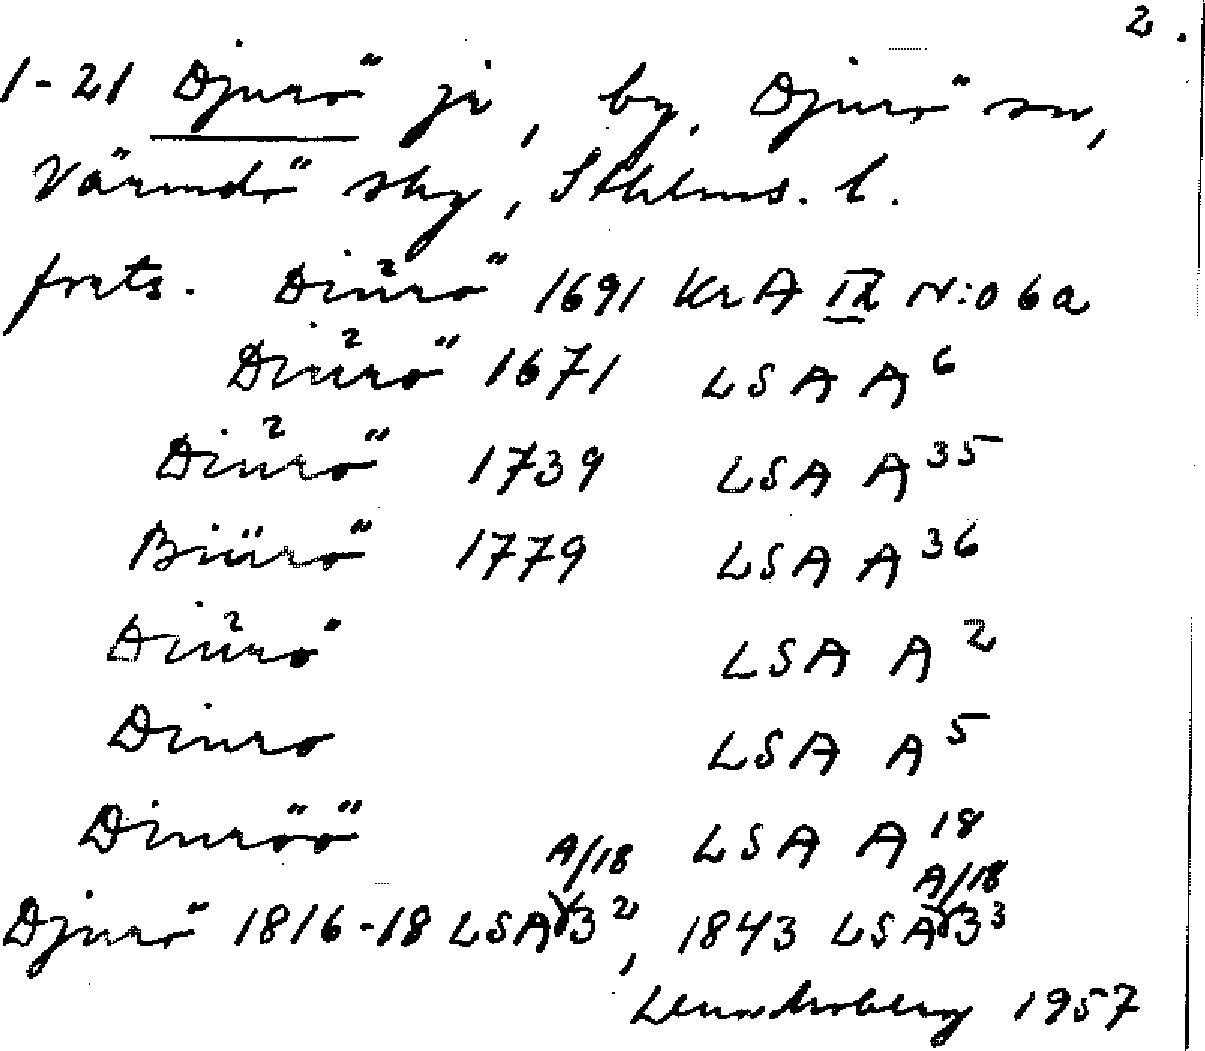 2.
1-21 Djurö jr, by, Djurö sn,
Värmdö sky, Sthlms. l.
forts. Diŭrö 1691 KrA IX N:o 6a
Diŭrö 1671 LSA A 6
Diŭrö 1739 LSA A 35
Biürö 1779 LSA A 36
Diŭrö LSA A 2
Diuro LSA A 5
Diuröö LSA A 18
A/18 A/18
Djurö 1816-18 LSA 3 2, 1843 LSA 3 3
1957